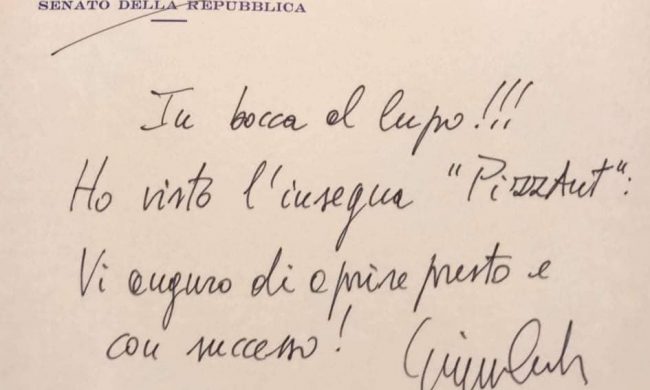 SENATO DELLA REPUBBLICA
In bocca al lupo!!!
Ho visto l'insegna "PizzAut":
Vi auguro di aprire presto e
con successo!